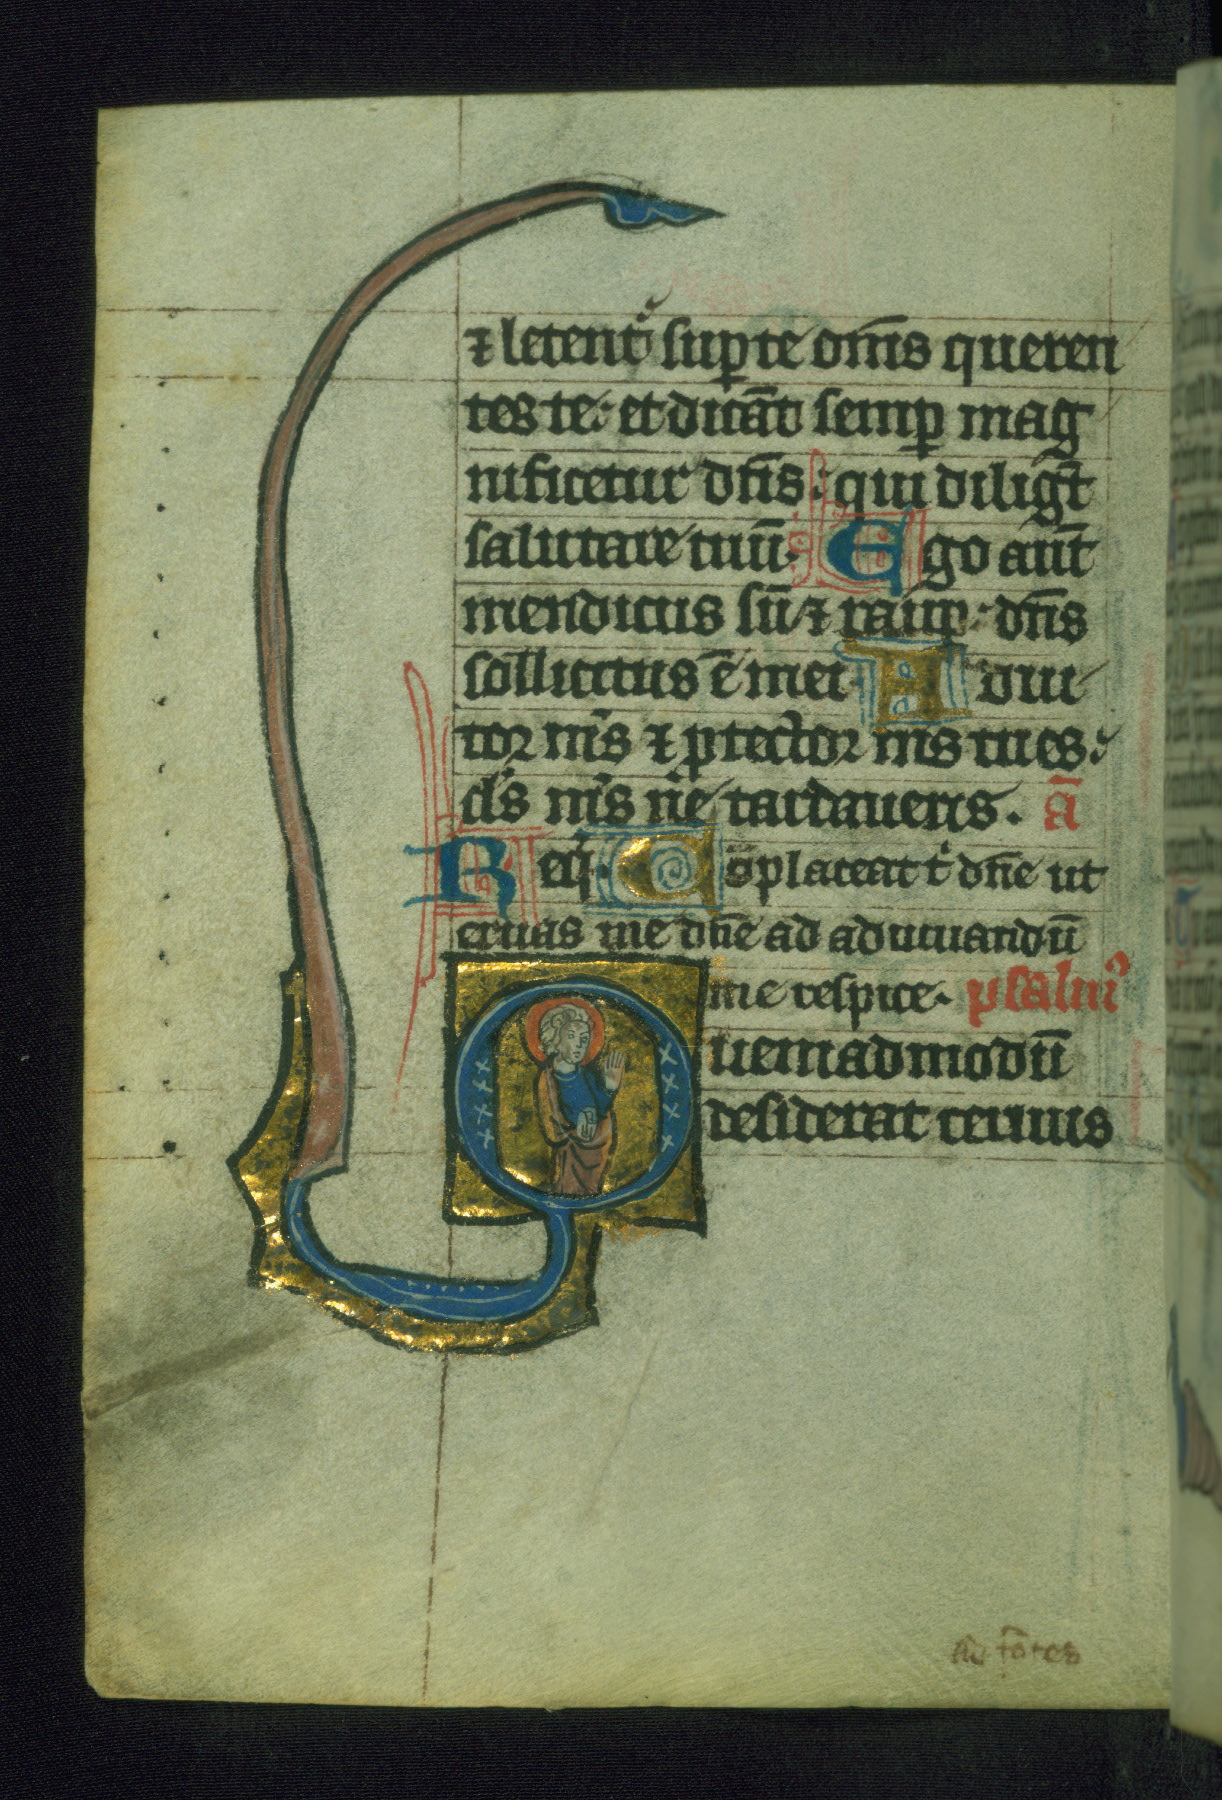 ⁊ letentᷣ suꝑ te om̄s queren
tes te: et dicāt semꝑ mag
nificetur dn̄s: qui diligūt
salutare tuū. Ego aūt
mendicus sū ⁊ paup̄: dn̄s
sollicitus ē mei. Adiu
tor m̄s ⁊ ꝓtector m̄s tu es:
ds̄ m̄s ne tardaueris. ā
Req̄. Cōplaceat tͥ dn̄e ut
eruas me dn̄e ad adiuuandū
me respice. psalmꝰ
Quemadmodū
desiderat ceruus
ad fōtes